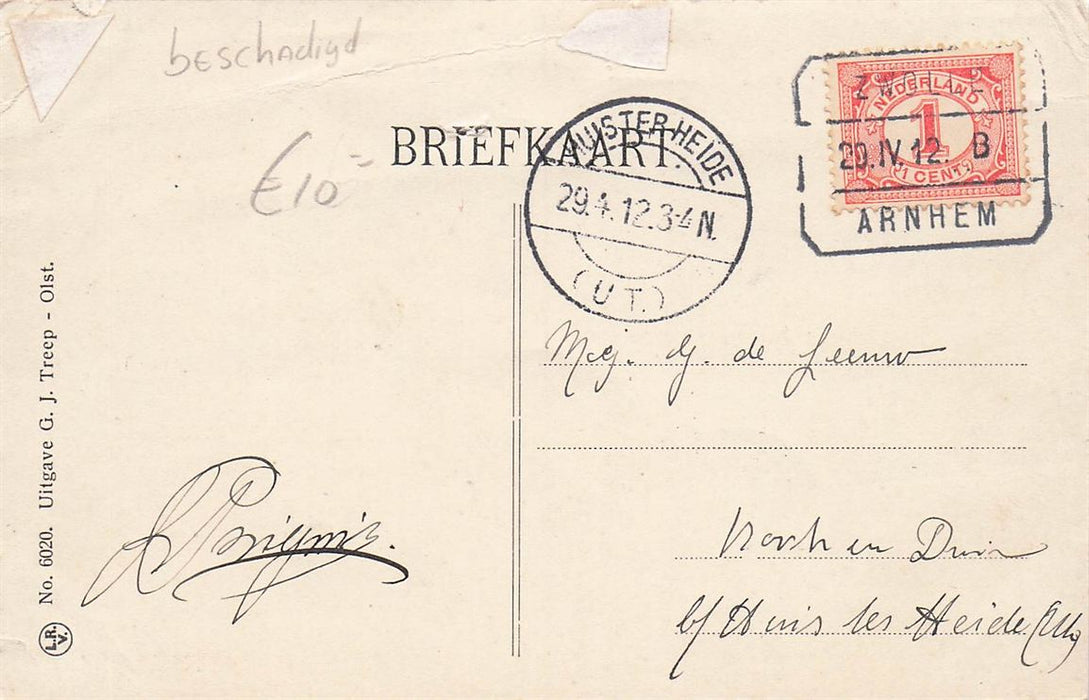 beschadigd
€10 =
BRIEFKAART.
HUISTER-HEIDE
29.4.12.3-4 N.
(UT.)
ZWOLLE
29.IV.12. B
ARNHEM
NEDERLAND
1
1 CENT
Mej. G. de Leeuw
en Duin
b/ Huis ter Heide (Ut)
No. 6020. Uitgave G. J. Treep - Olst.
L.R.
V.